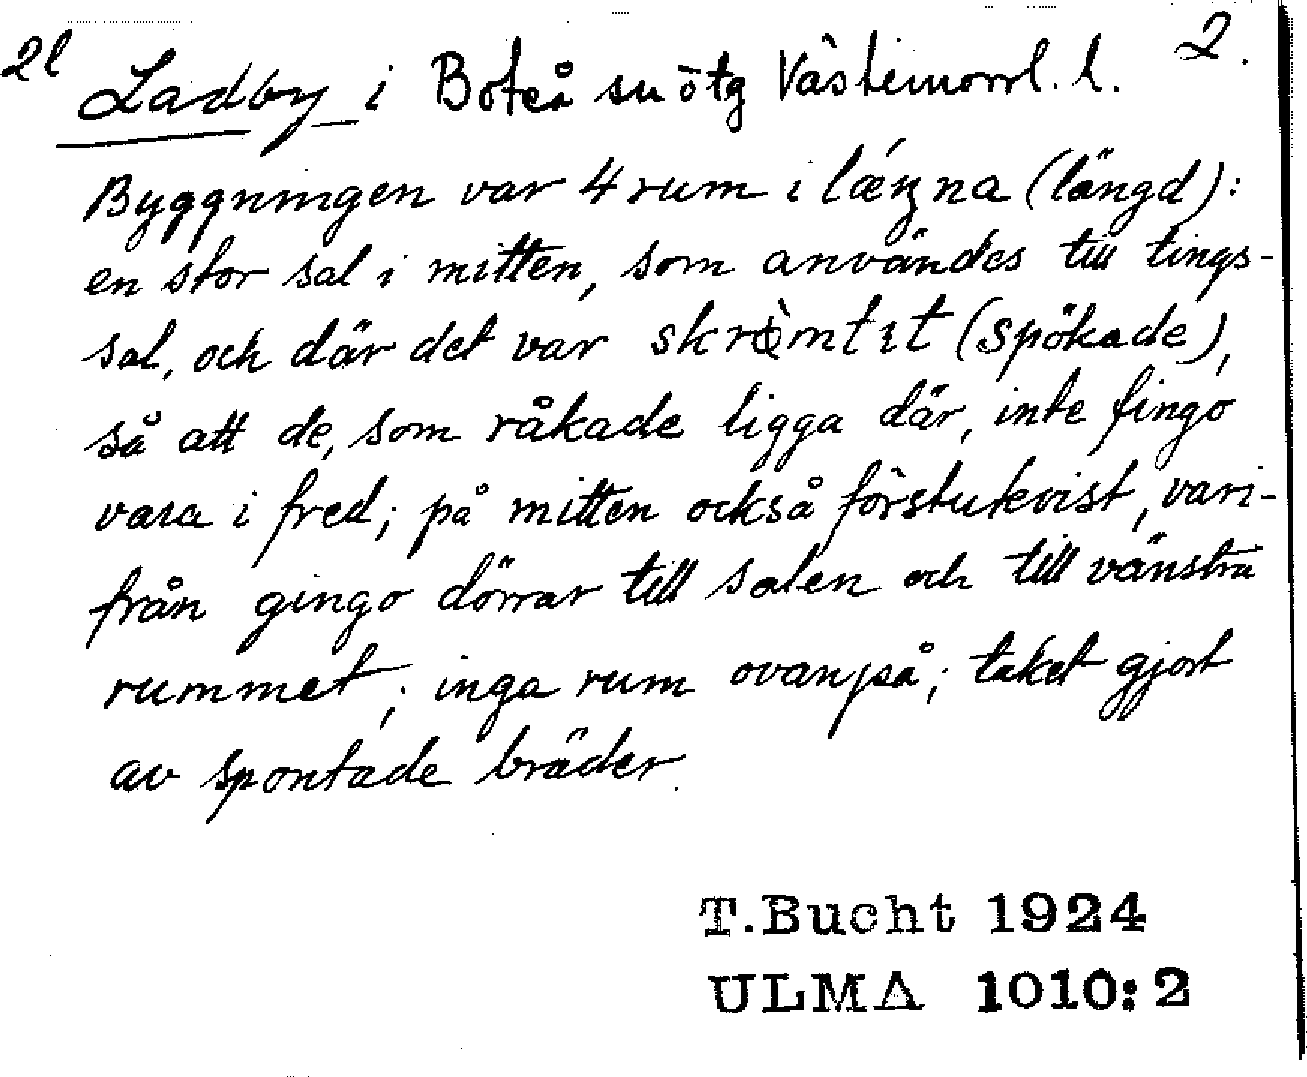 2l Ladby i Boteå sn ötg Västernorrl. l. 2.
Byggningen var 4 rum i lǽŋna (längd):
en stor sal i mitten, som användes till tings-
sal, och där det var skrœ̀mtıt (spökade),
så att de, som råkade ligga där, inte fingo
vara i fred; på mitten också förstukvist, vari-
från gingo dörrar till salen och till vänstra
rummet; inga rum ovanpå; taket gjort
av spontade bräder.
T. Bucht 1924
ULMA 1010:2